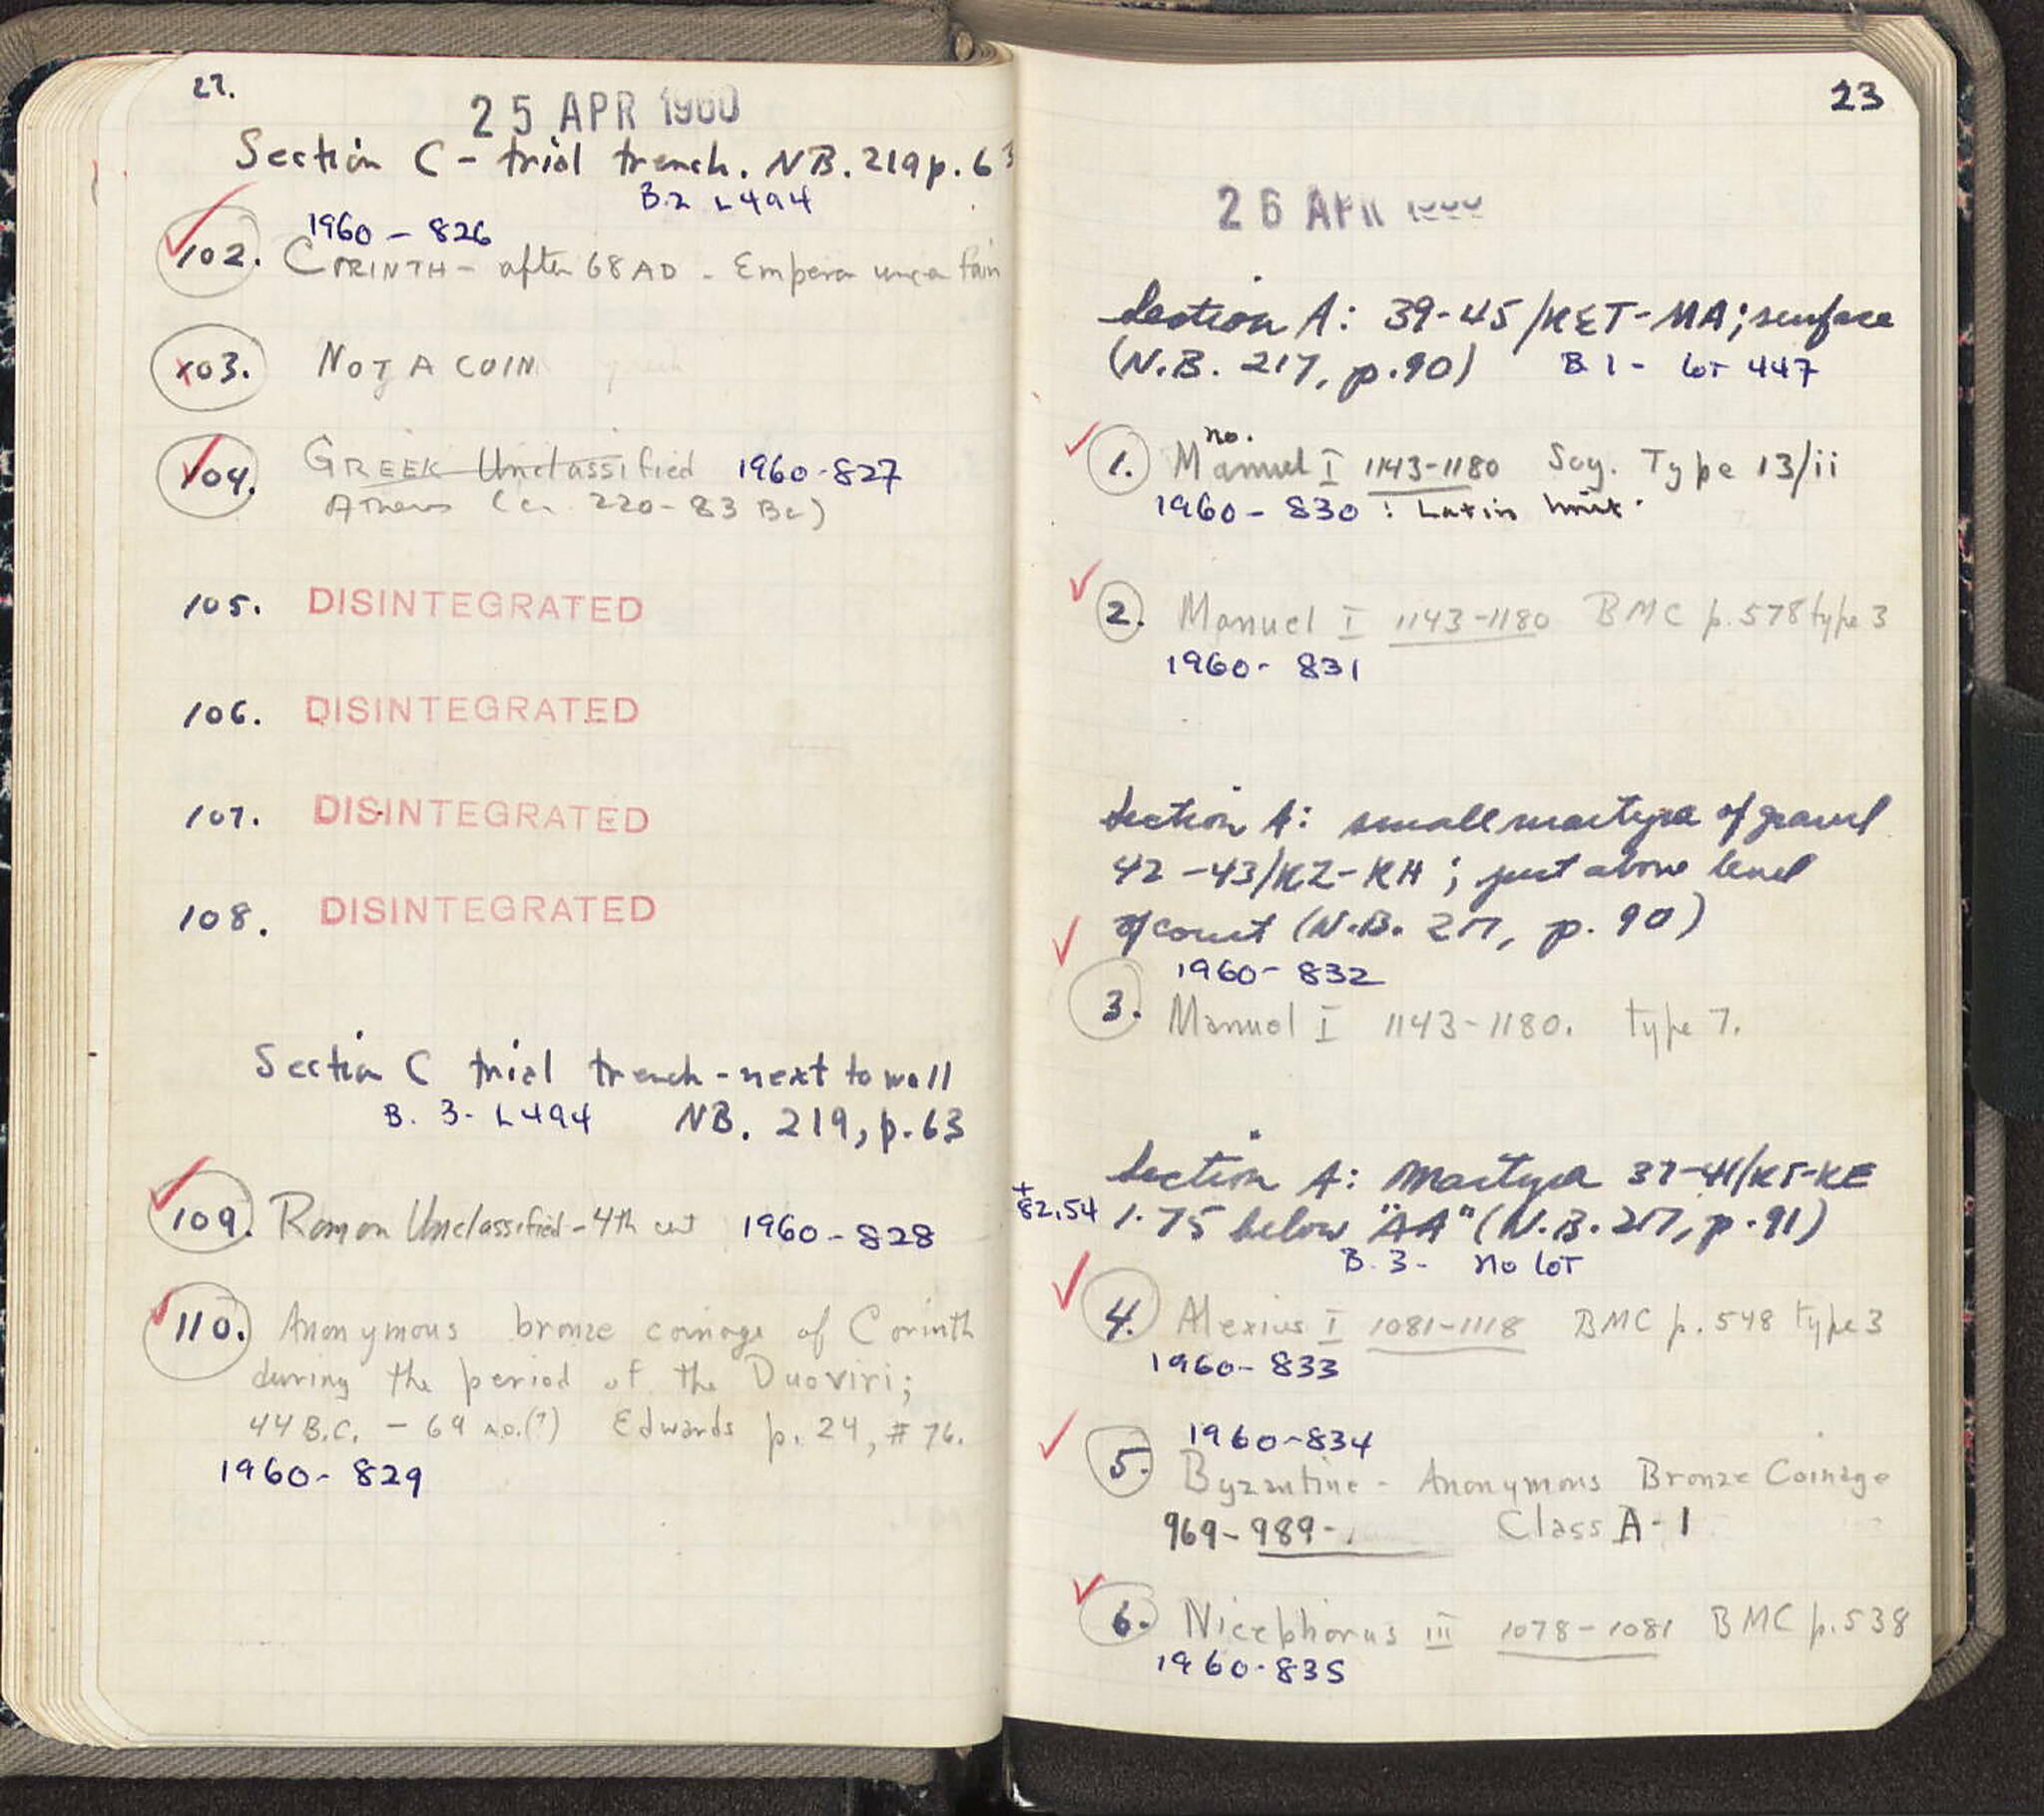 22.
25 APR 1960
Section C - trial trench. NB. 219 p. 63
B.2 L494
1960 - 826
102. CORINTH - after 68 AD - Emperor uncertain
103. NOT A COIN
104. GREEK Unclassified 1960-827
Athens (c. 220-83 BC)
105. DISINTEGRATED
106. DISINTEGRATED
107. DISINTEGRATED
108. DISINTEGRATED
Section C trial trench - next to wall
B. 3- L494 NB. 219, p. 63
109. Roman Unclassified - 4th cent 1960-828
110. Anonymous bronze coinage of Corinth
during the period of the Duoviri;
44 B.C. - 69 A.D.(?) Edwards p. 24, #76.
1960- 829
23
26 APR
Section A: 39-45/KET-MA; surface
(N.B. 217, p. 90) B 1 - lot 447
no.
1. Manuel I 1143-1180 Scy. Type 13/ii
1960- 830 : Latin Imit.
2. Manuel I 1143-1180 BMC p. 578 type 3
1960- 831
Section A: small martyra of gravel
42-43/KZ-KH; just above level
of court (N.B. 217, p. 90)
1960- 832
3. Manuel I 1143-1180. type 7.
Section A: Martyra 37-41/KT-KE
+
82.54 1.75 below "AA" (N.B. 217, p. 91)
B. 3- no lot
4. Alexius I 1081-1118 BMC p. 548 type 3
1960- 833
1960-834
5. Byzantine - Anonymous Bronze Coinage
969-989- Class A-1
6. Nicephorus III 1078-1081 BMC p. 538
1960-835